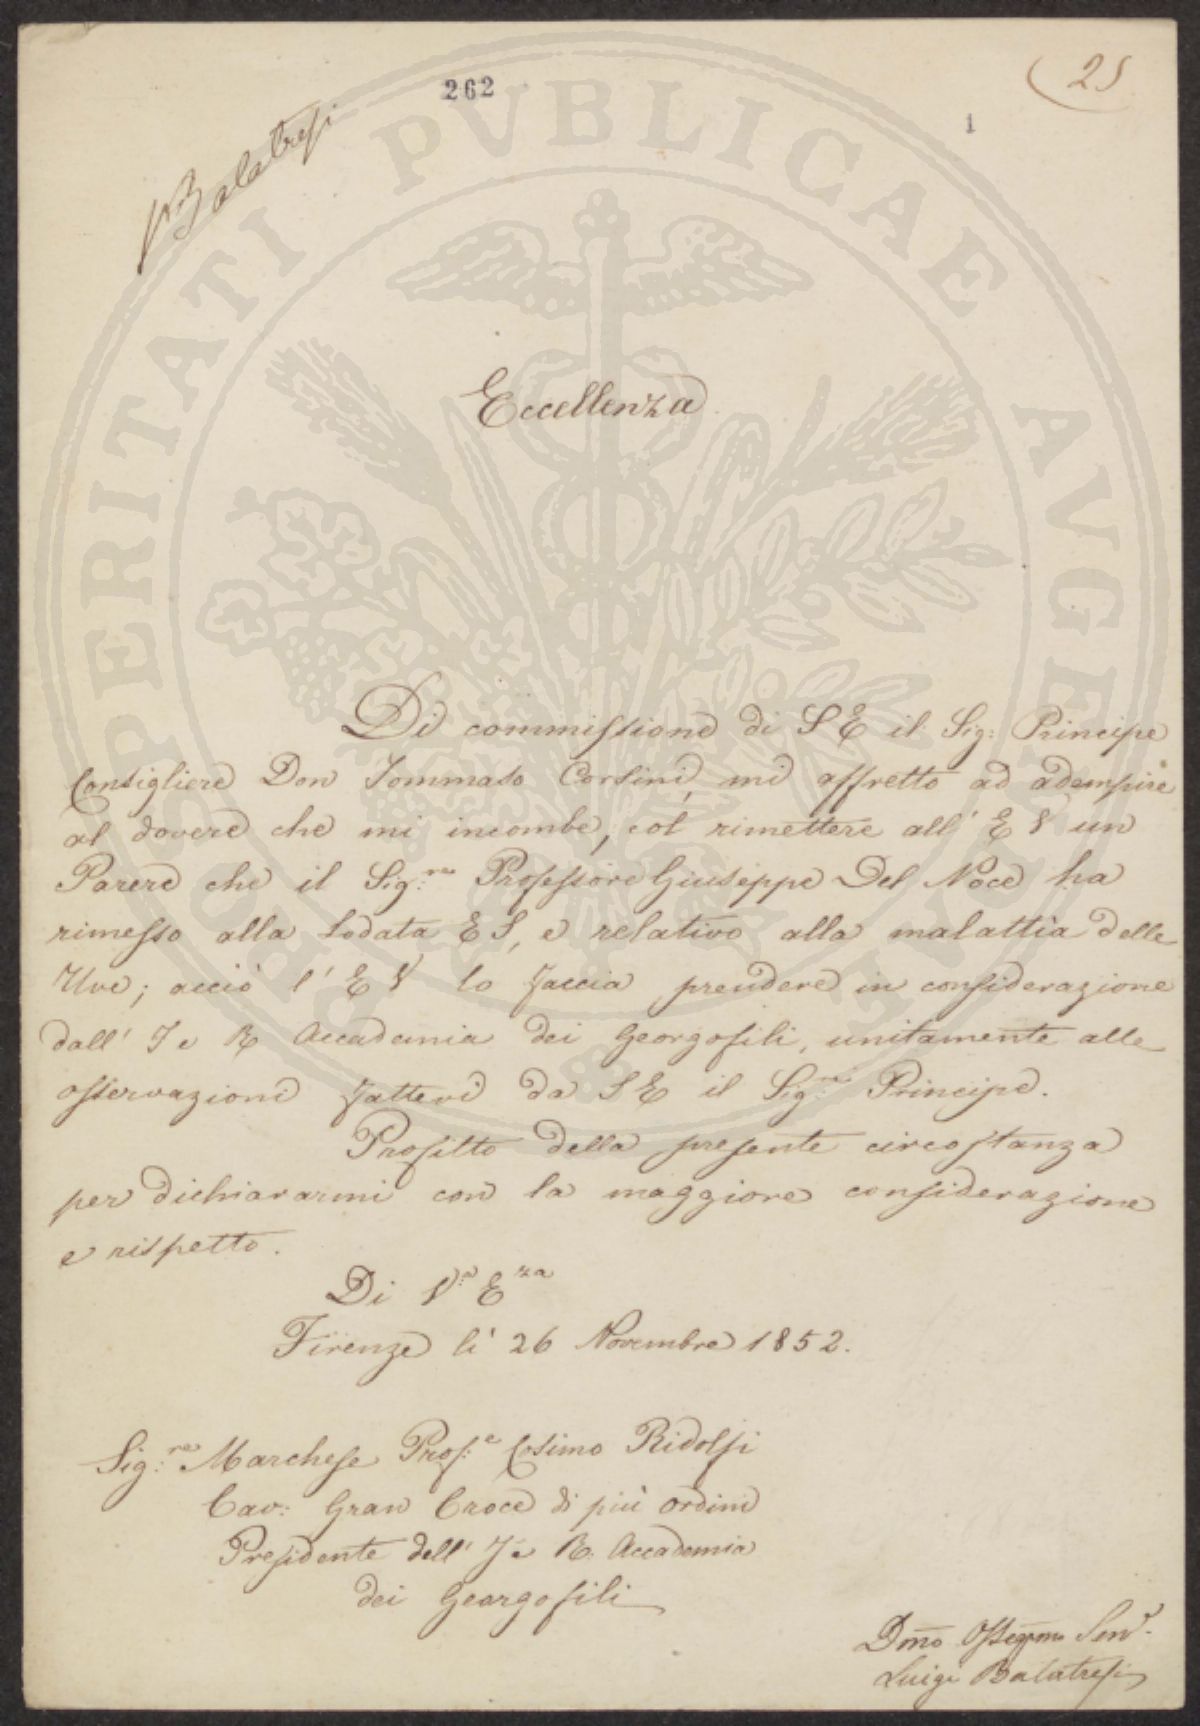 262
25
1
Balatresi
PROSPERITATI PVBLICAE AVGENDAE
Eccellenza
Di commissione di S E il Sig: Principe
Consigliere Don Tommaso Corsini, mi affretto ad adempire
al dovere che mi incombe, col rimettere all' E V un
Parere che il Sig:re Professore Giuseppe Del Noce ha
rimesso alla Lodata E S, e relativo alla malattia delle
Uve; acciò l' E V lo faccia prendere in considerazione
dall' I e R Accademia dei Georgofili, unitamente alle
osservazioni fattevi da S E il Sig:re Principe.
Profitto della presente circostanza
per dichiararmi con la maggiore considerazione
e rispetto.
Di V:a E:za
Firenze lì 26 Novembre 1852.
Sig:re Marchese Prof:e Cosimo Ridolfi
Cav: Gran Croce di più ordini
Presidente dell' I e R. Accademia
dei Georgofili
Dmo Ossequmo Serv:
Luigi Balatresi